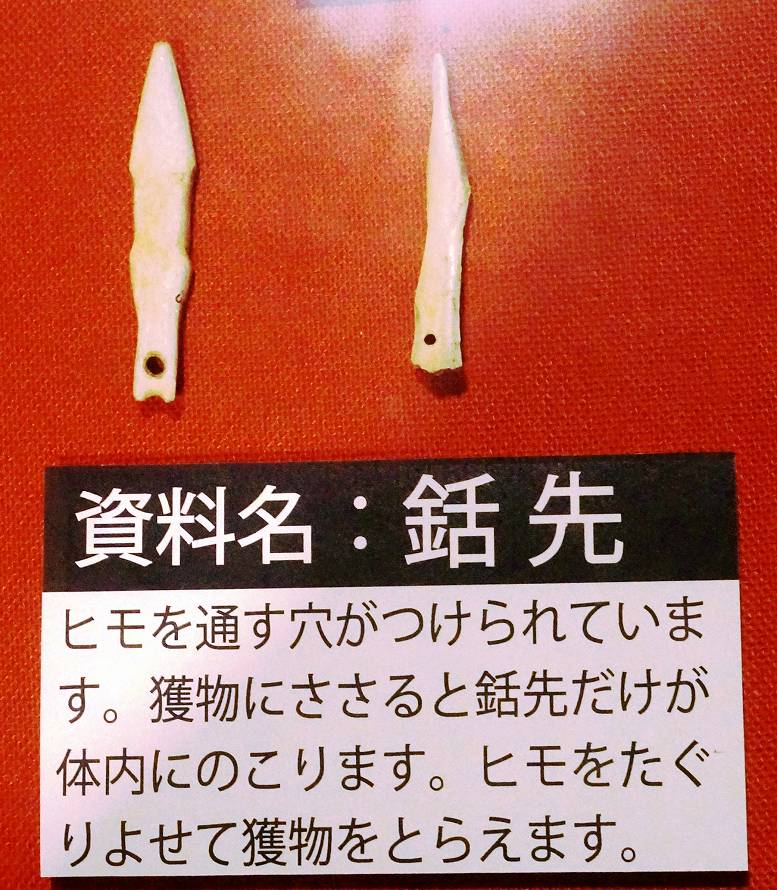 資料名：銛先
ヒモを通す穴がつけられていま
す。獲物にささると銛先だけが
体内にのこります。ヒモをたぐ
りよせて獲物をとらえます。